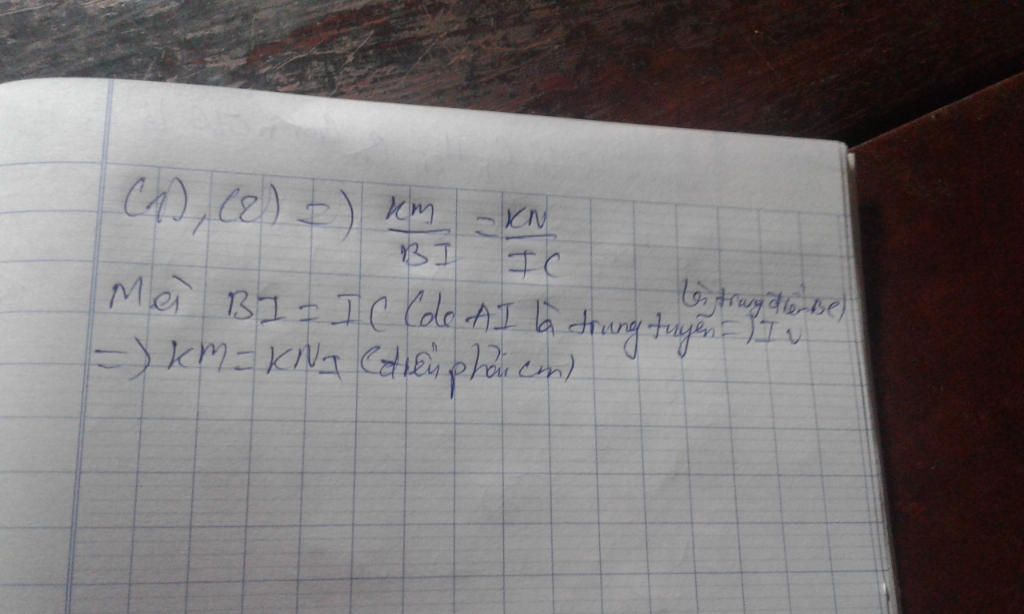 (1), (2) =) KM/BI = KN/IC
Mà BI = IC (do AI là trung tuyến =) I là trung điểm BC)
=) KM = KN (điều phải cm)